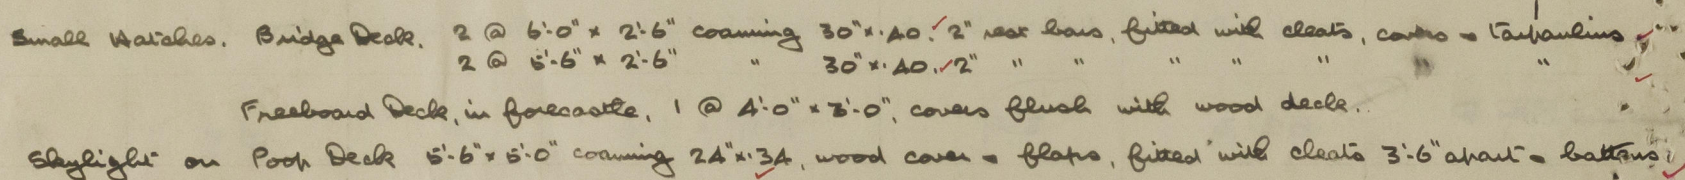 Small Hatches. Bridge Deck. 2 @ 6'-0" x 2'-6" coaming 30" x .40. 2" rest bars, fitted with cleats, covers & tarpaulins
2 @ 5'-6" x 2'-6" " 30" x .40. 2" " " " " " " "
Freeboard Deck, in forecastle, 1 @ 4'-0" x 3'-0", covers flush with wood deck.
Skylight on Poop Deck 5'-6" x 5'-0" coaming 24" x .34, wood cover & flaps, fitted with cleats 3'-6" apart & battens